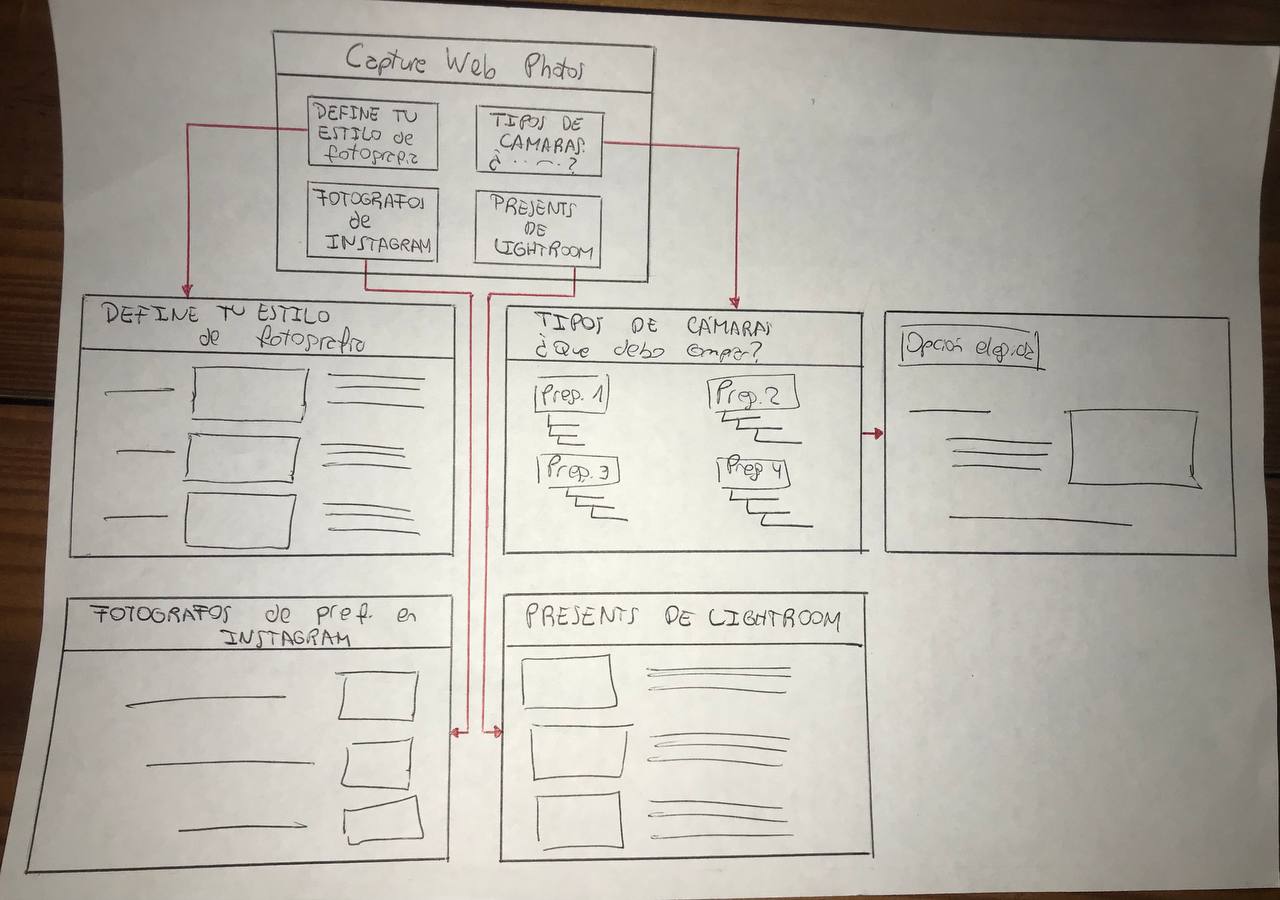 Capture Web Photos
DEFINE TU
ESTILO de
fotografia
TIPOS DE
CAMARAS.
¿ . . . . ?
FOTOGRAFOS
de
INSTAGRAM
PRESENTS
DE
LIGHTROOM
DEFINE TU ESTILO
de fotografia
TIPOS DE CÁMARAS
¿Que debo compar?
Preg. 1
Preg. 2
Preg. 3
Preg 4
Opción elegida
FOTOGRAFOS de pref. en
INSTAGRAM
PRESENTS DE LIGHTROOM